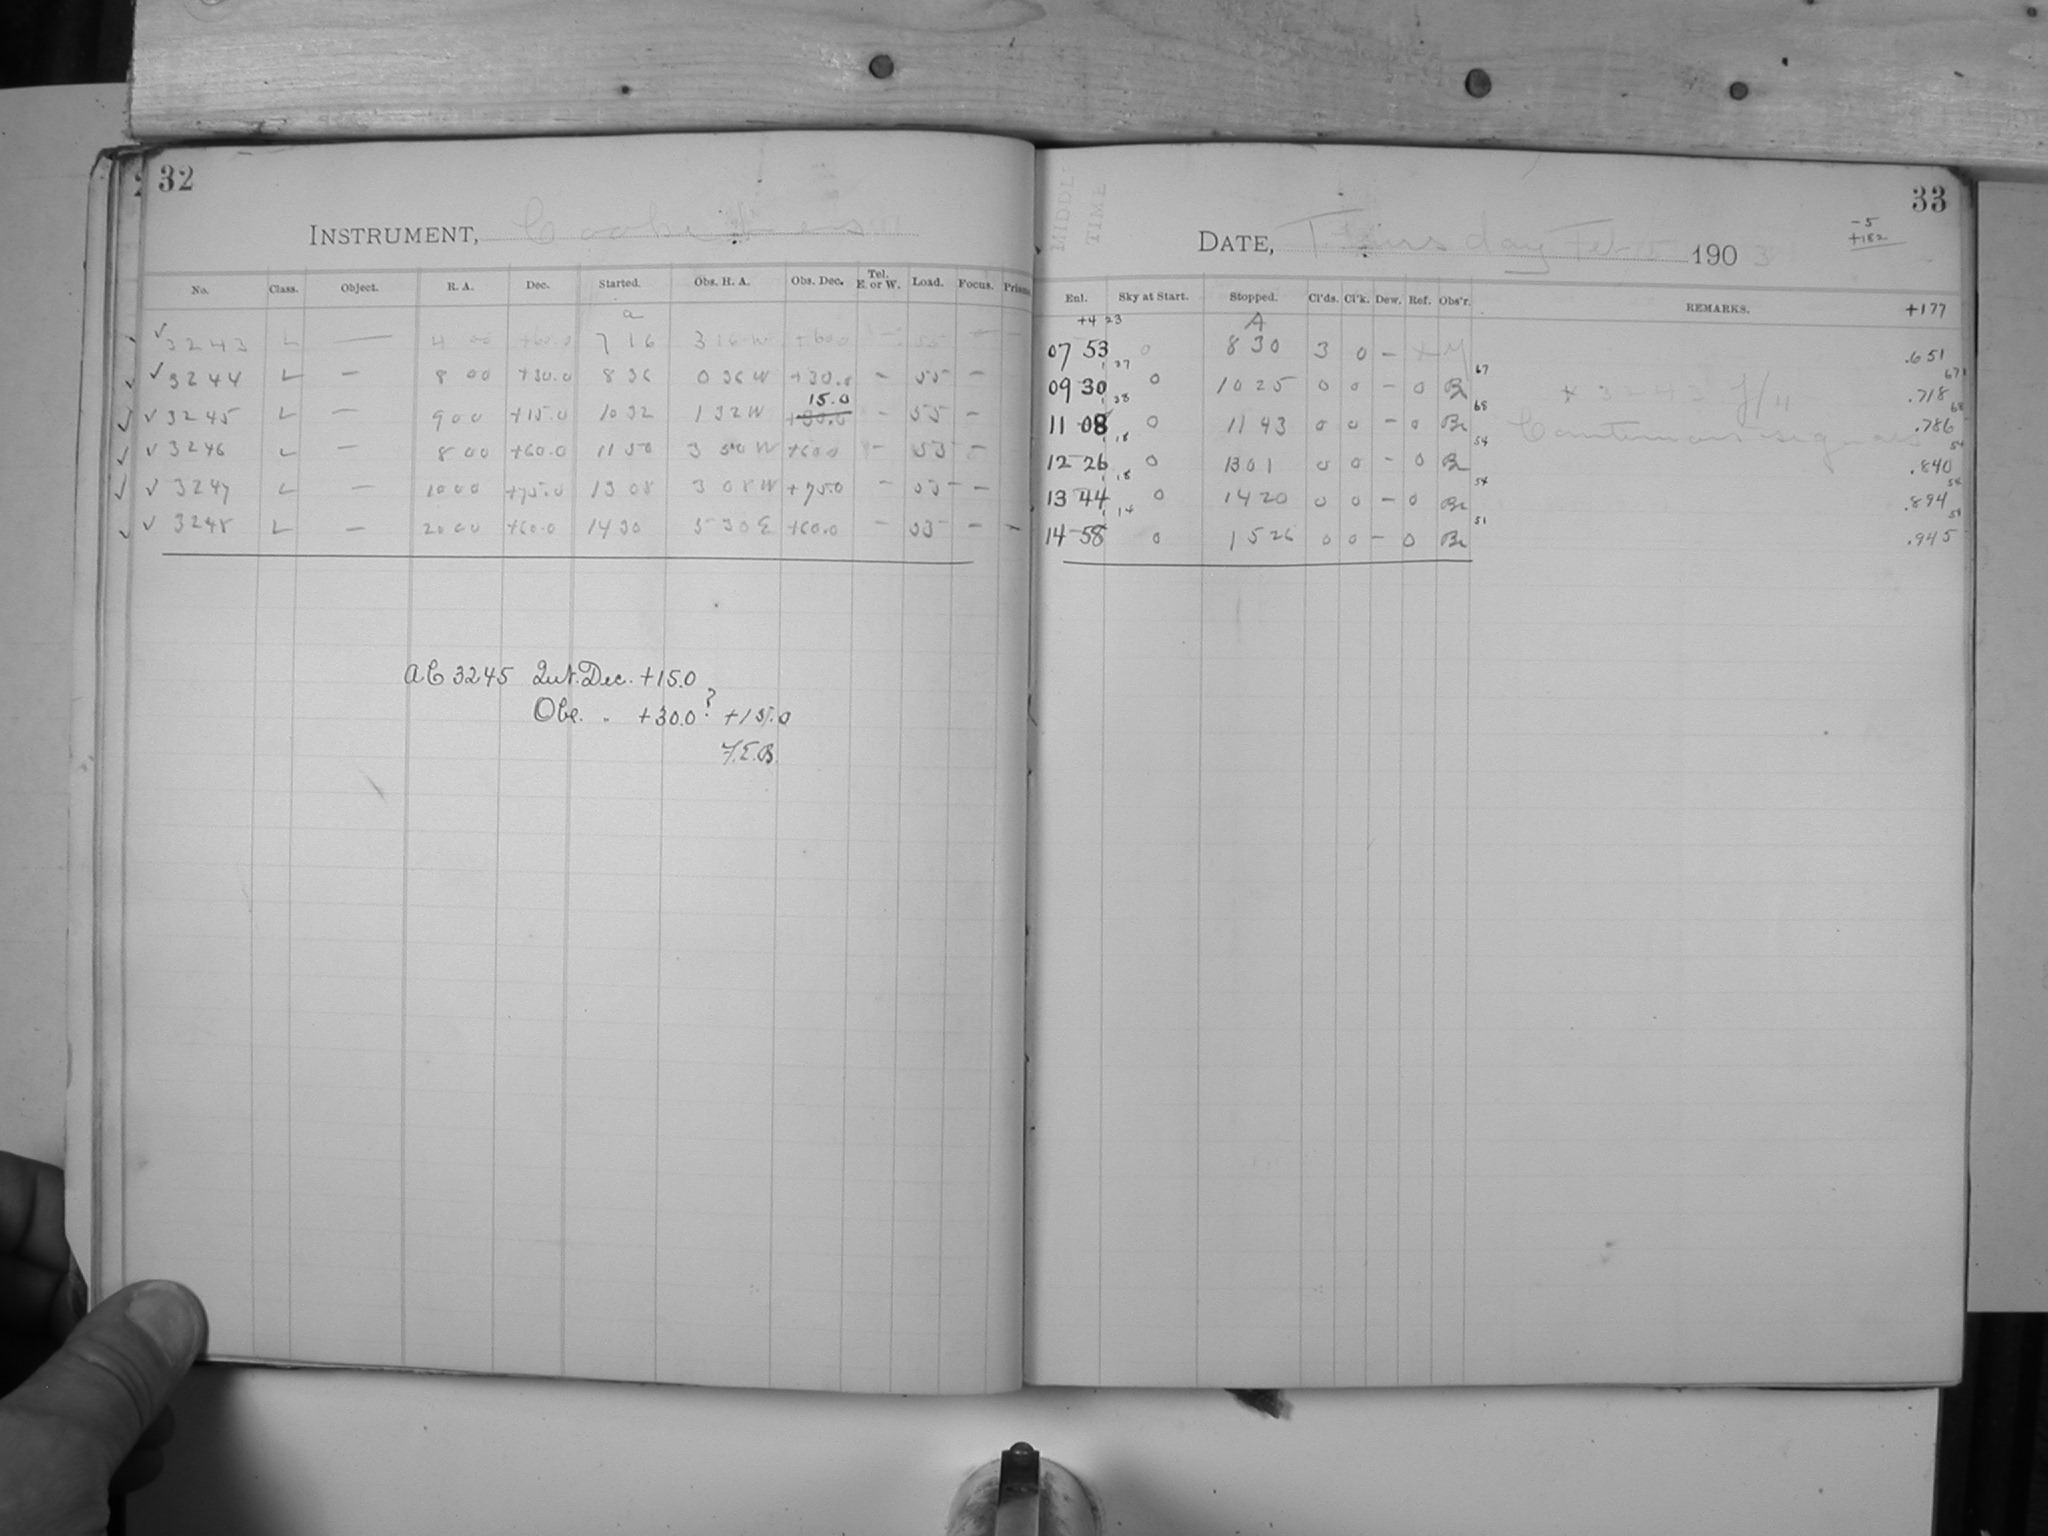 32
INSTRUMENT, Cooke Lens
No. Class. Object. R. A. Dec. Started. Obs. H. A. Obs. Dec. Tel. E. or W. Load. Focus. Prism
a
✓ 3243 L — 4 00 +60.0 7 16 3 16 W +60.0 — 55 — —
✓ 3244 L — 8 00 +30.0 8 36 0 36 W +30.0 — 55 —
15.0
✓ 3245 L — 9 00 +15.0 10 32 1 32 W +30.0 — 55 —
✓ 3246 L — 8 00 +60.0 11 50 3 50 W +60.0 — 55 —
✓ 3247 L — 10 00 +75.0 13 08 3 08 W +75.0 — 55 —
✓ 3248 L — 20 00 +60.0 14 30 5 30 E +60.0 — 55 — —
AC 3245 Int. Dec. +15.0
Obs. " +30.0? +15.0
F.E.B.
33
MIDDLE
TIME
-5
+182
DATE, Thursday Feb 1903
Enl. Sky at Start. Stopped. Cl'ds. Cl'k. Dew. Ref. Obs'r. REMARKS. +177
+4 23 A
07 53 0 8 30 3 0 — .651
1 37 67 67
09 30 0 10 25 0 0 — 0 Br * 3243 f/4 .718
1 38 68 68
11 08 0 11 43 0 0 — 0 Br Continuous signals .786
1 18 54 54
12 26 0 13 01 0 0 — 0 Br .840
1 18 54 54
13 44 0 14 20 0 0 — 0 Br .894
1 14 51 51
14 58 0 15 26 0 0 — 0 Br .945